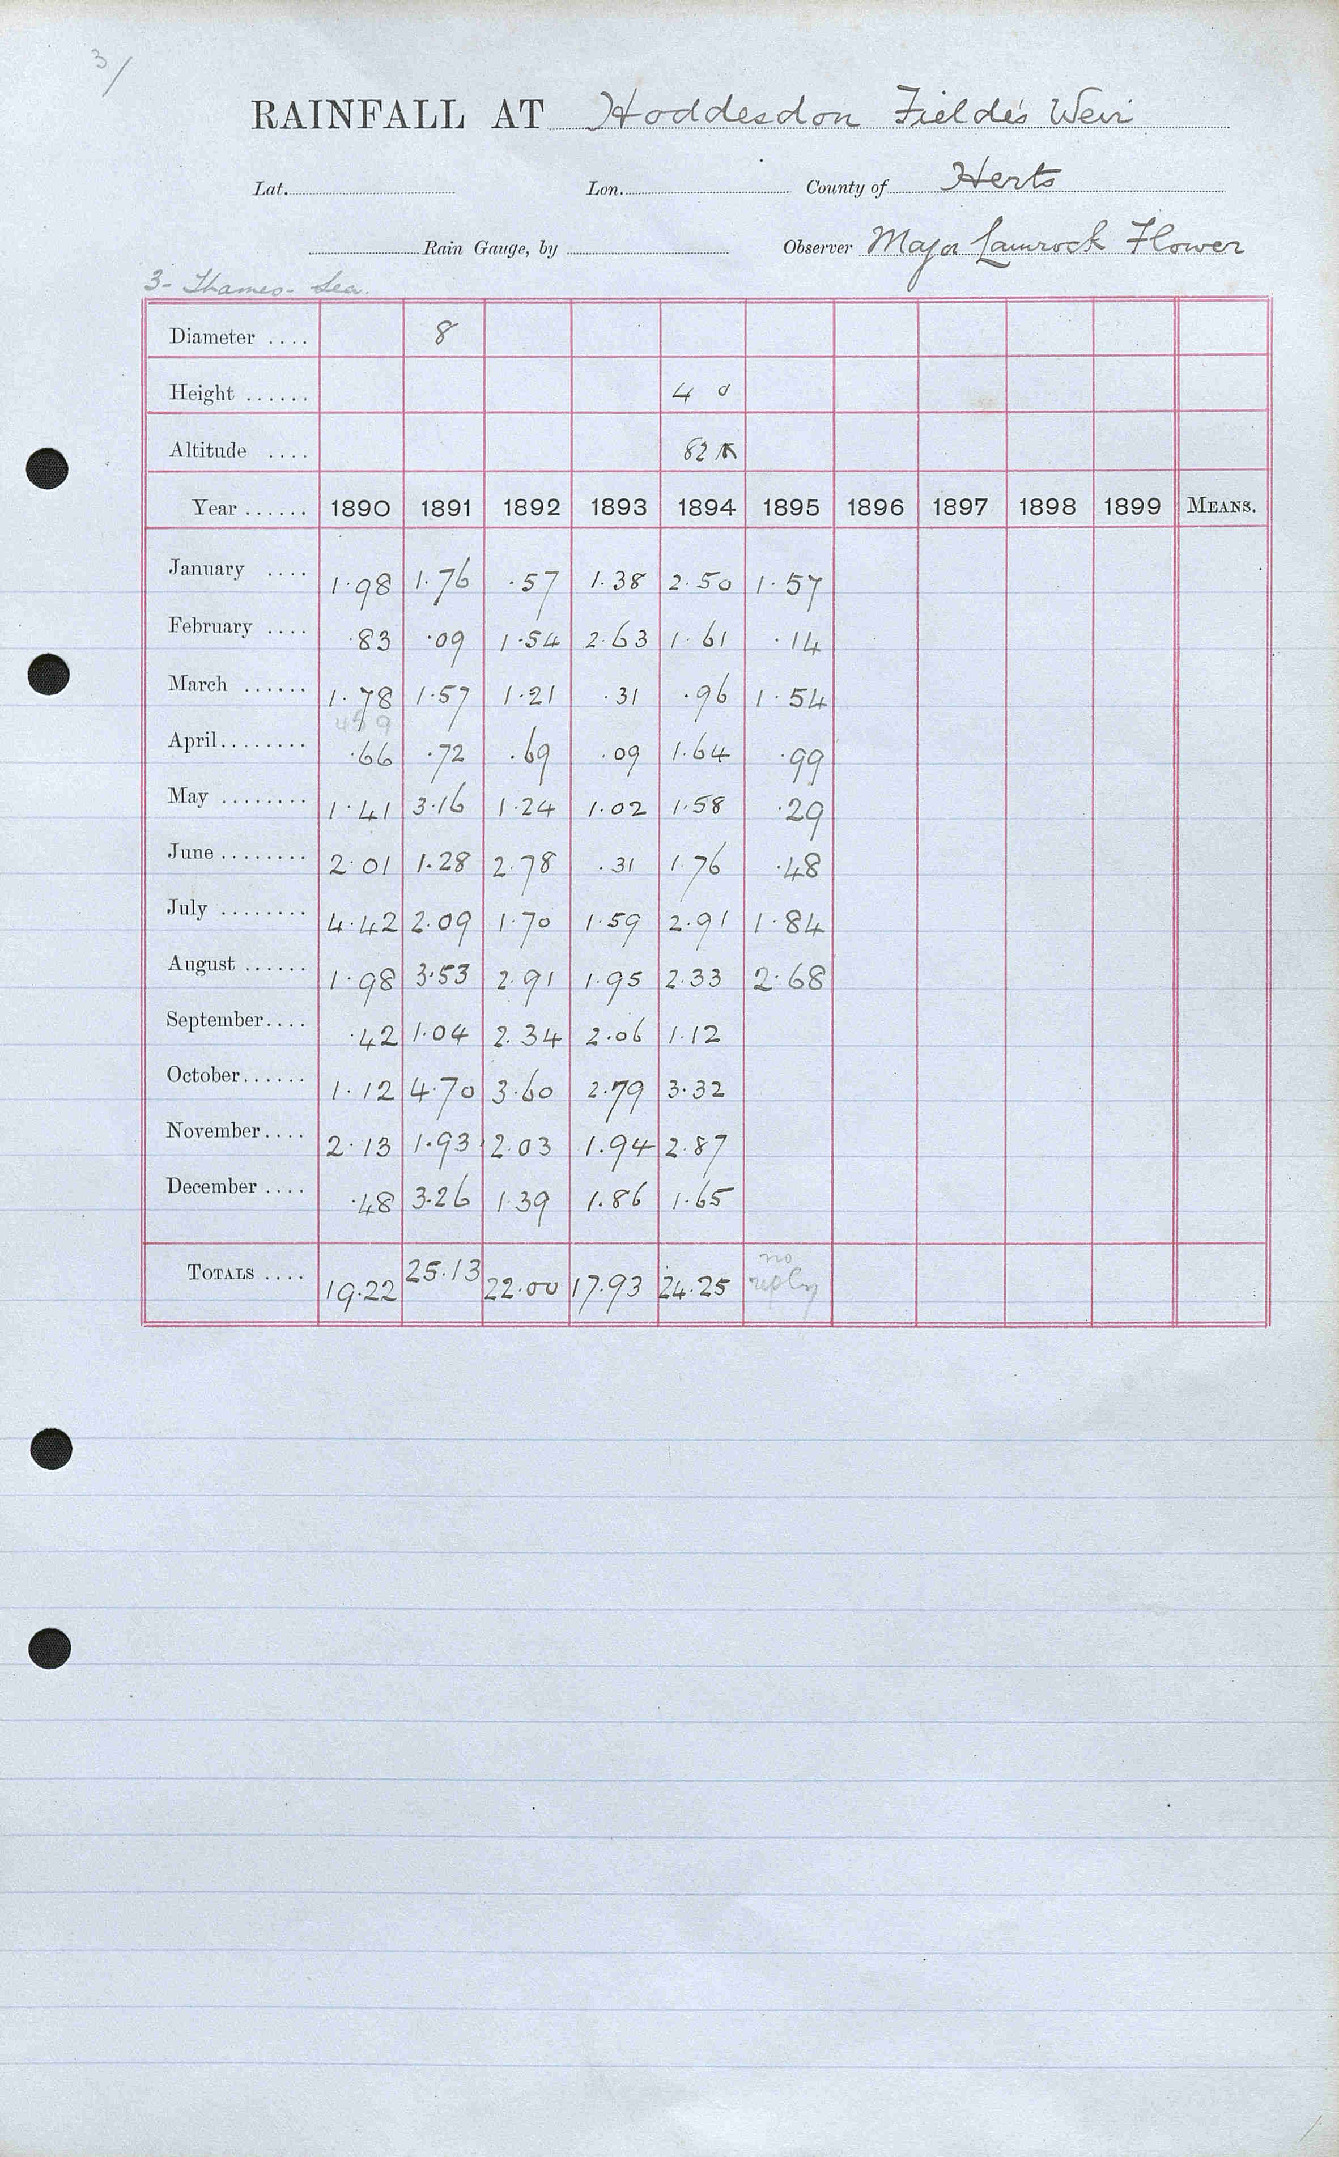 3/
RAINFALL AT Hoddesdon Fielde's Weir
Lat. Lon. County of Herts
Rain Gauge, by Observer Major Lamrock Flower
3- Thames- Lea.
Diameter .... 8
Height ...... 4 0
Altitude .... 82
Year ...... 1890 1891 1892 1893 1894 1895 1896 1897 1898 1899 MEANS.
January .... 1.98 1.76 .57 1.38 2.50 1.57
February .... .83 .09 1.54 2.63 1.61 .14
March ...... 1.78 1.57 1.21 .31 .96 1.54
459
April........ .66 .72 .69 .09 1.64 .99
May ........ 1.41 3.16 1.24 1.02 1.58 .29
June ........ 2.01 1.28 2.78 .31 1.76 .48
July ........ 4.42 2.09 1.70 1.59 2.91 1.84
August ...... 1.98 3.53 2.91 1.95 2.33 2.68
September.... .42 1.04 2.34 2.06 1.12
October...... 1.12 4.70 3.60 2.79 3.32
November.... 2.13 1.93 2.03 1.94 2.87
December .... .48 3.26 1.39 1.86 1.65
TOTALS .... 19.22 25.13 22.00 17.93 24.25 no reply